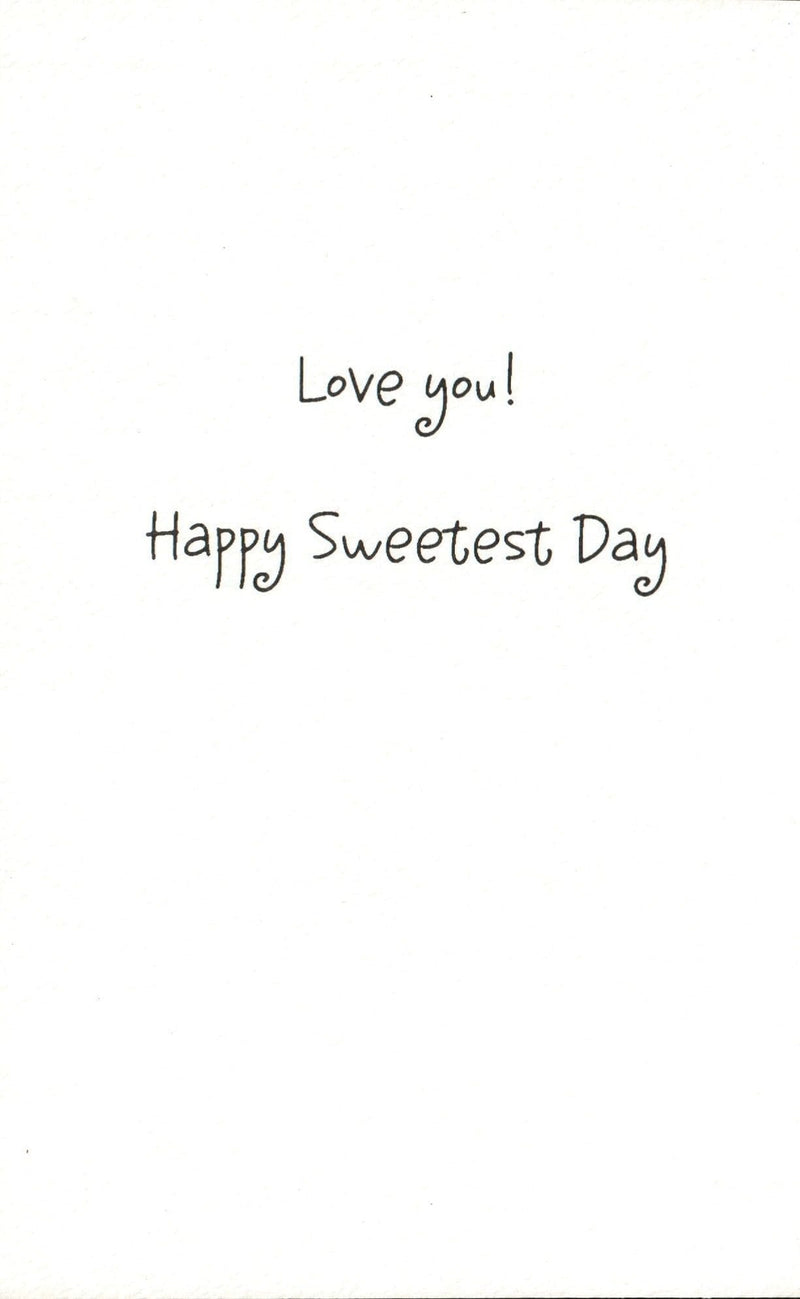 Love you!
Happy Sweetest Day